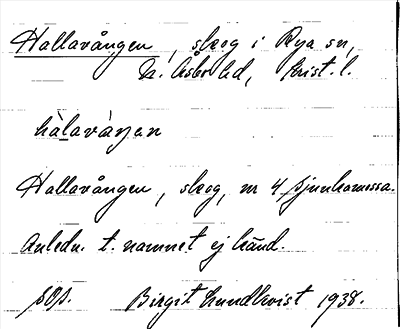 Hallavången, skog i Rya sn,
N. Åsbo hd, Krist. l.
hàlavàŋen
Hallavången, skog, m 4 Sjunkamossa.
Anledn. t. namnet ej känd.
Birgit Lundkvist 1938.